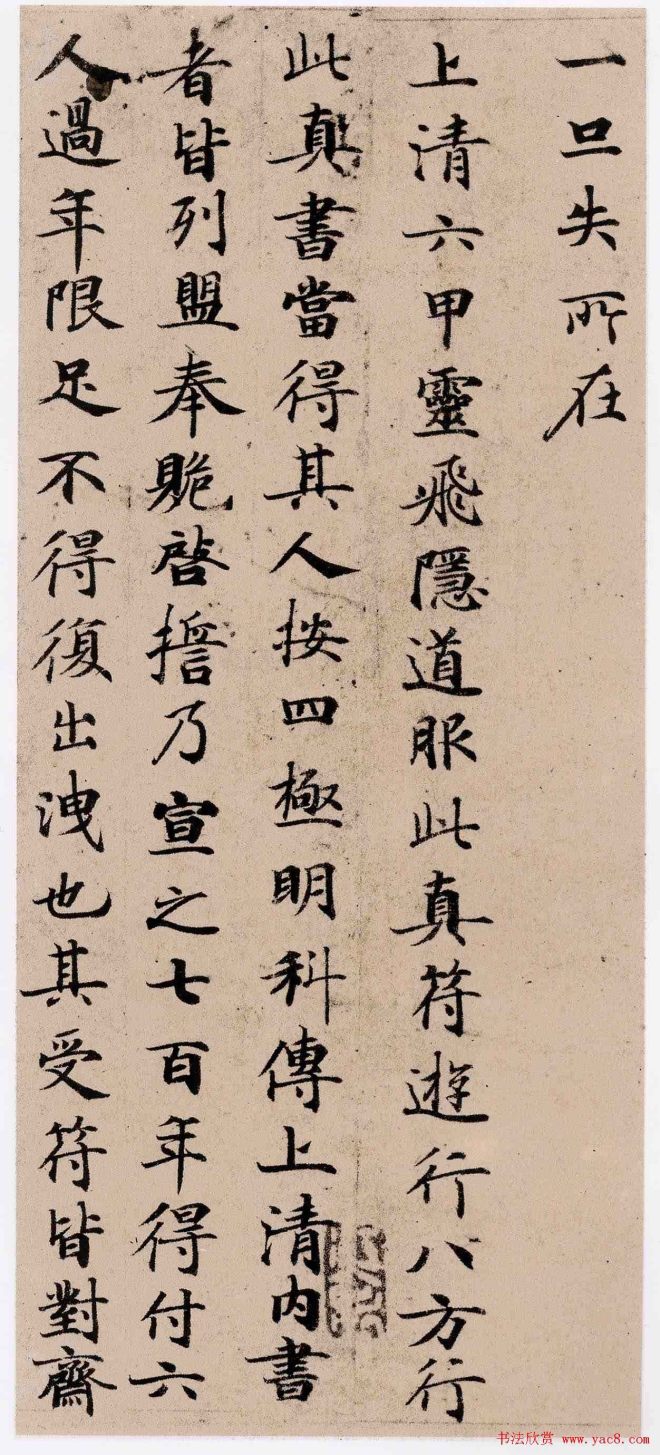 一旦失所在
上清六甲靈飛隱道服此真符遊行八方行
此真書當得其人按四極明科傳上清內書
者皆列盟奉贶啓擔乃宣之七百年得付六
人過年限足不得復出洩也其受符皆對齋
书法欣赏 www.yac8.com